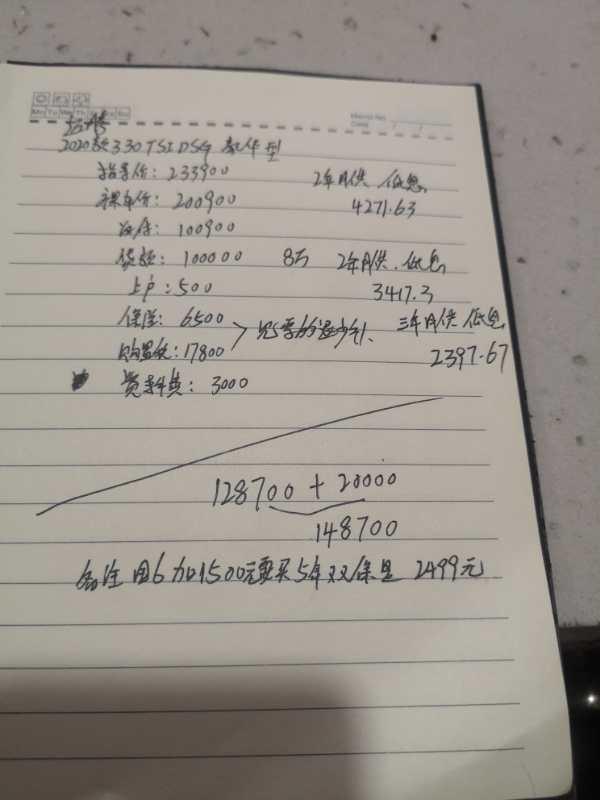 Mo Tu We Th Fr Sa Su
Memo No.
Date / /
2020款330TSI DSG 豪华型
指导价: 233900
2年月供 低息
裸车价: 200900
4271.63
首付: 100900
贷款: 100000
8万 2年月供. 低息
上户: 500
3417.3
保险: 6500
三年月供 低息
购置税: 17800
2397.67
资料费: 3000
128700 + 20000
148700
备注 国6加1500元要买5年双保是 2499元